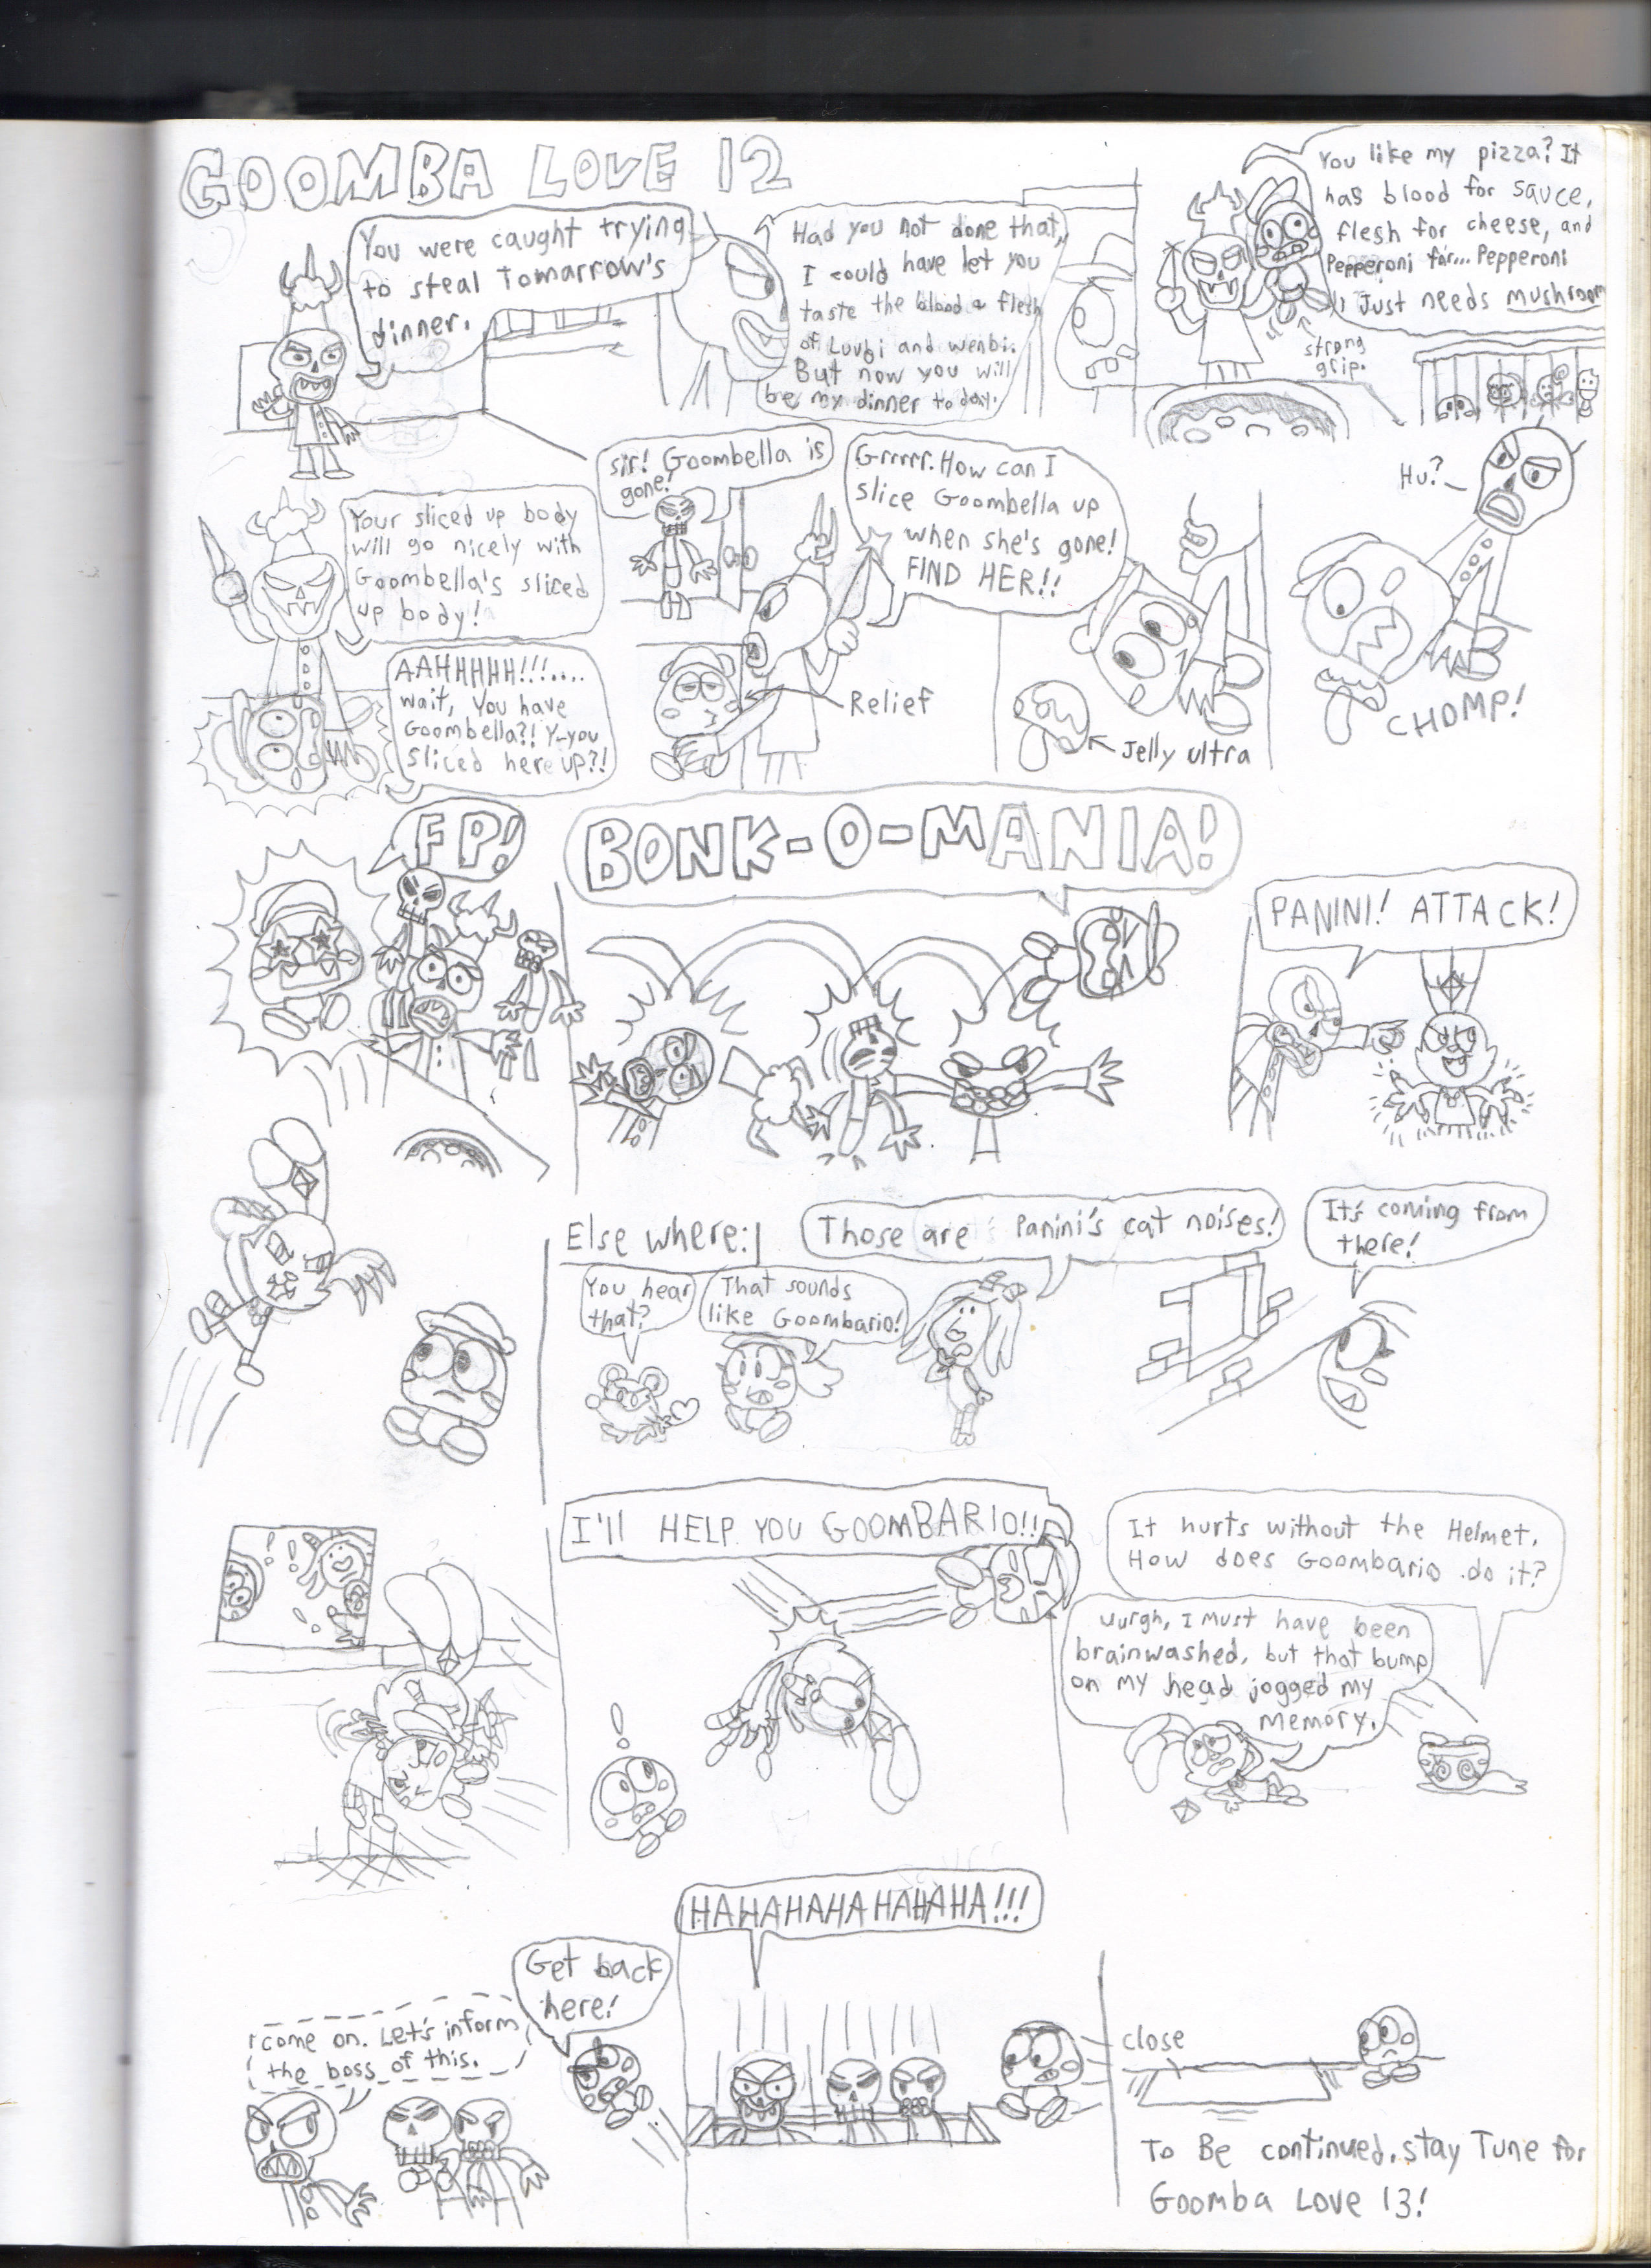 GOOMBA LOVE 12
You were caught trying
to steal Tomarrow's
dinner.
Had you not done that,
I could have let you
taste the blood & flesh
of Luvbi and wenbi.
But now you will
be my dinner to day.
You like my pizza? It
has blood for sauce,
flesh for cheese, and
Pepperoni for... Pepperoni
Just needs mushroom
strong
grip.
Your sliced up body
will go nicely with
Goombella's sliced
up body!
AAHHHHH!!!....
wait, You have
Goombella?! Y-you
sliced here up?!
sir! Goombella is
gone!
Grrrrr. How can I
slice Goombella up
when she's gone!
FIND HER!!
Relief
Jelly ultra
Hu?
CHOMP!
FP!
BONK-O-MANIA!
PANINI! ATTACK!
Else where:
You hear
that?
That sounds
like Goombario!
Those are Panini's cat noises!
It's coming from
there!
I'll HELP YOU GOOMBARIO!!
It hurts without the Helmet.
How does Goombario do it?
uurgh, I must have been
brainwashed, but that bump
on my head jogged my
memory.
come on. Let's inform
the boss of this.
Get back
here!
HAHAHAHAHAHAHA!!!
close
To Be continued. stay Tune for
Goomba Love 13!